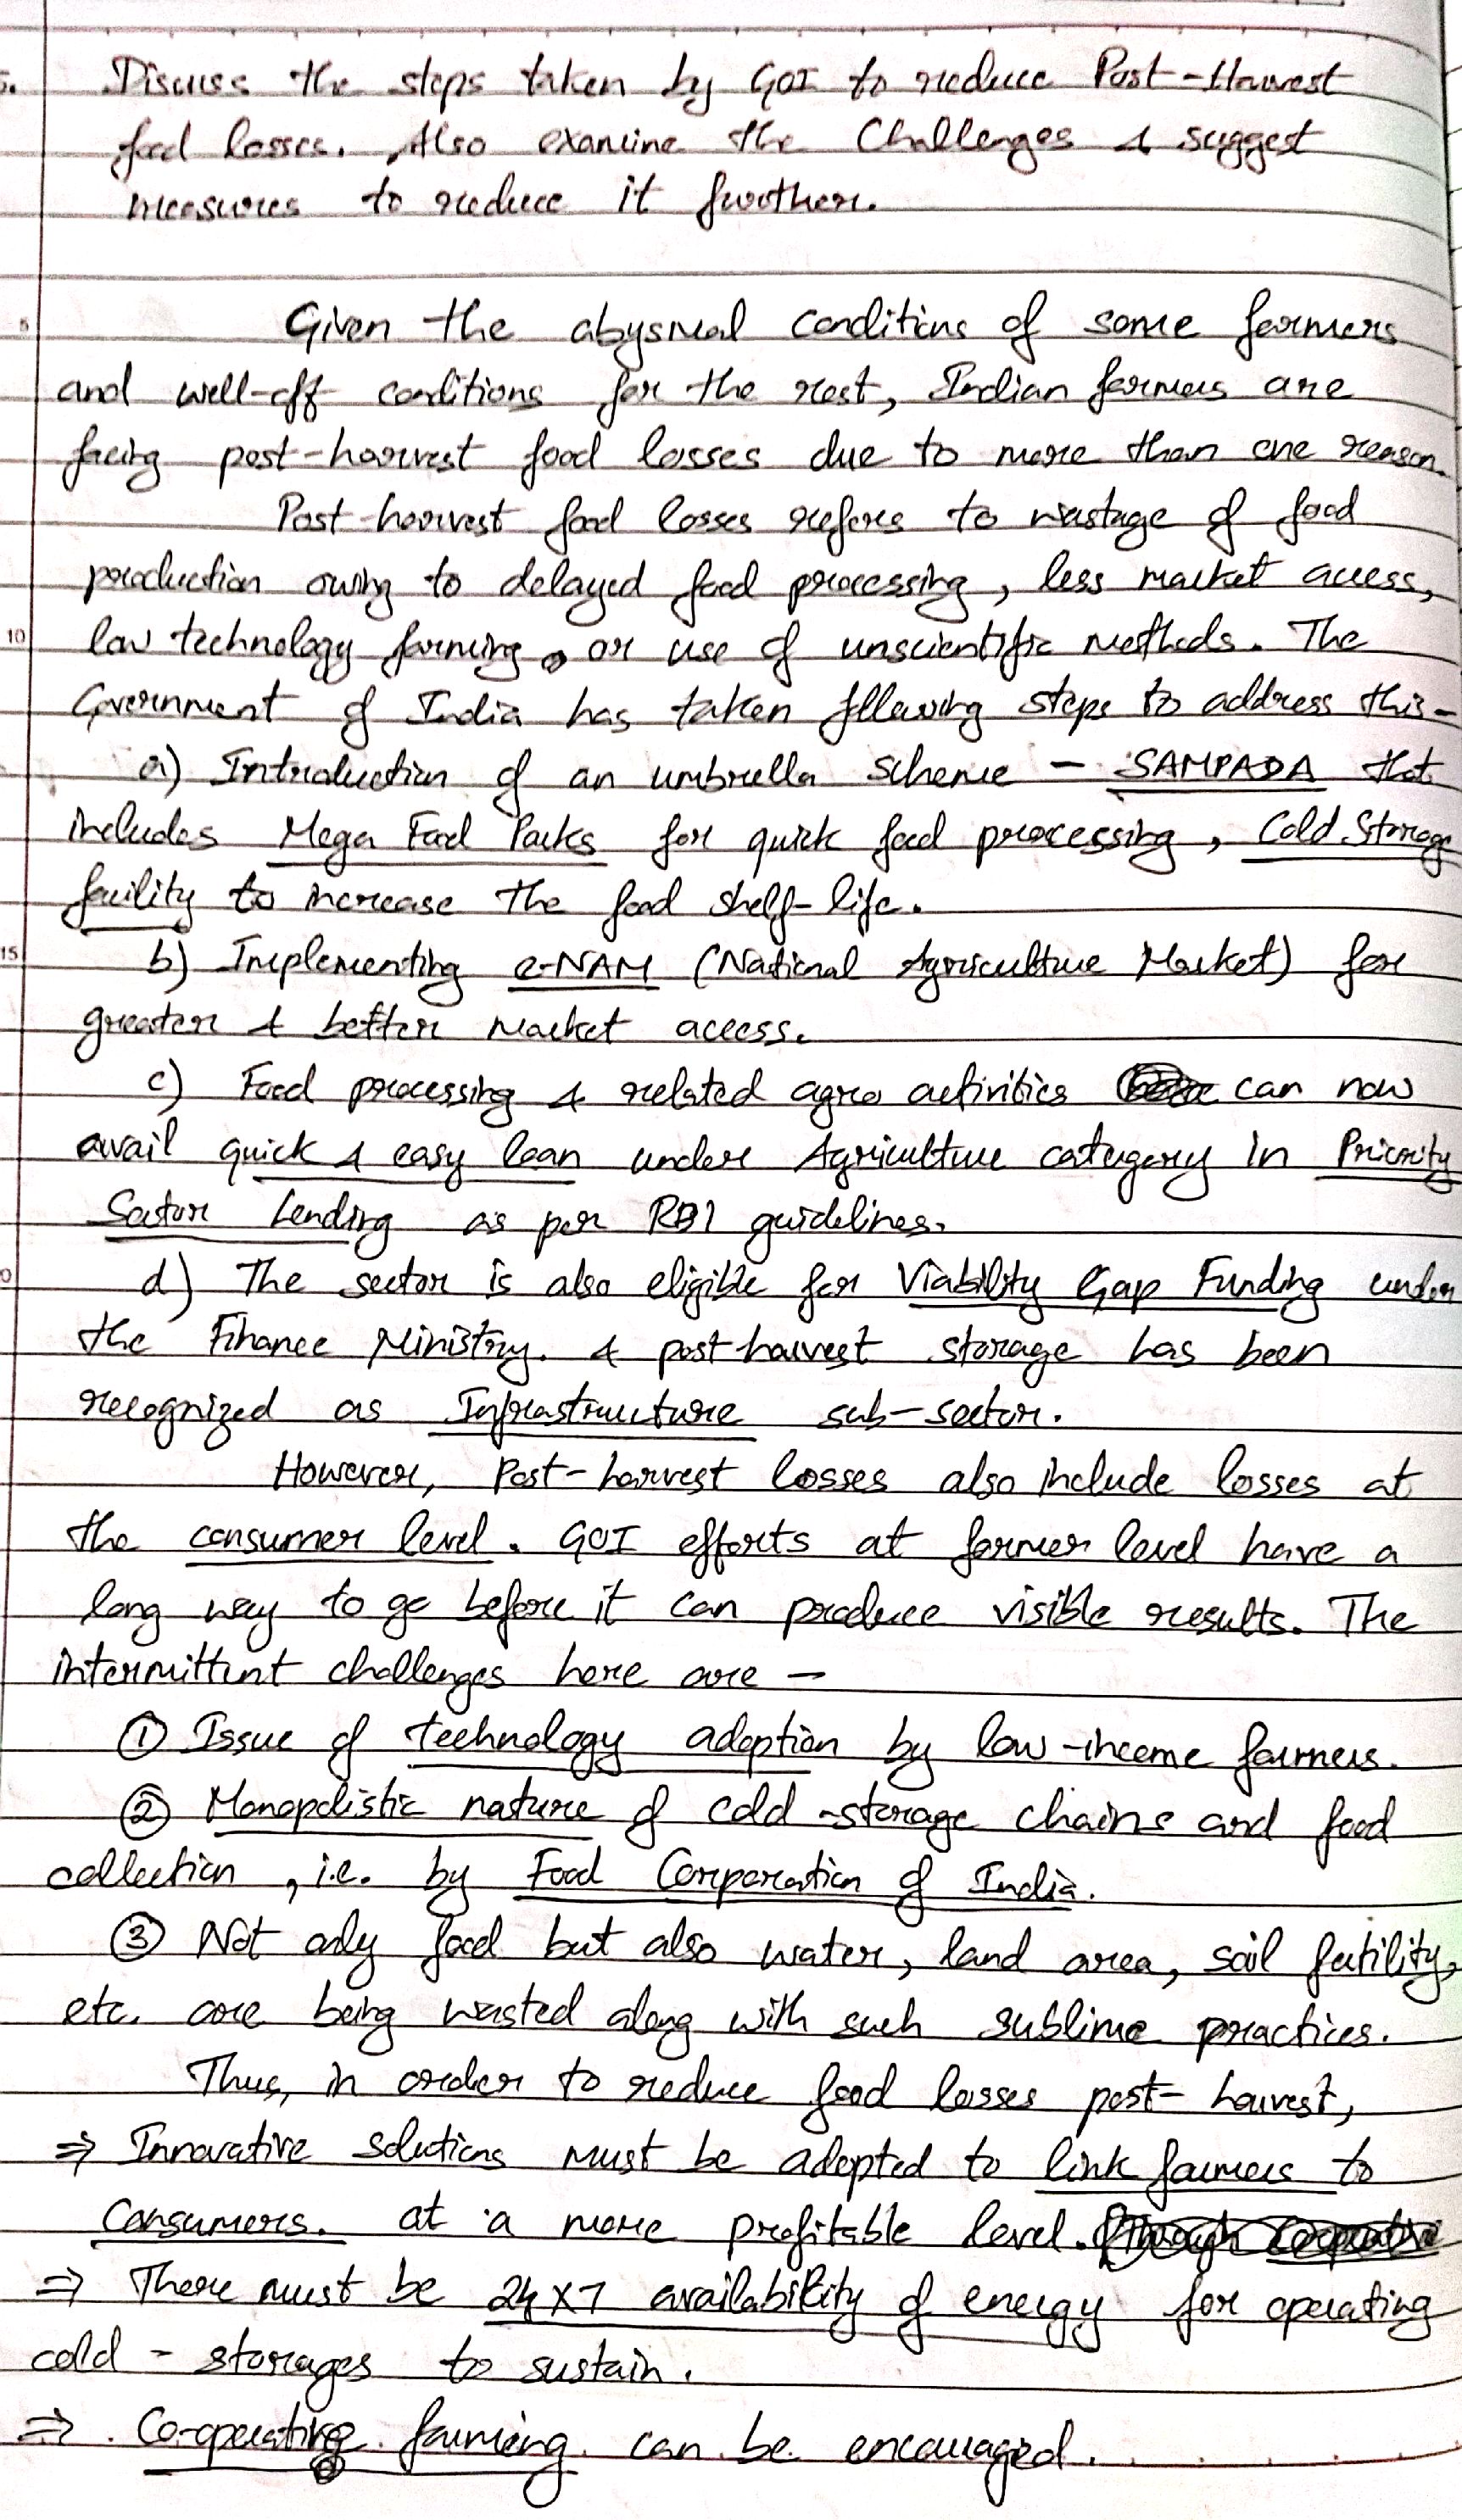 5. Discuss the steps taken by GOI to reduce Post-Harvest
food losses. Also examine the Challenges & suggest
measures to reduce it further.
5
Given the abysmal conditions of some farmers
and well-off conditions for the rest, Indian farmers are
facing post-harvest food losses due to more than one reason.
Post-harvest food losses refers to wastage of food
production owing to delayed food processing, less market access,
10 low technology farming or use of unscientific methods. The
Government of India has taken following steps to address this-
a) Introduction of an umbrella scheme - SAMPADA that
includes Mega Food Parks for quick food processing, Cold Storage
facility to increase the food shelf-life.
15 b) Implementing e-NAM (National Agriculture Market) for
greater & better market access.
c) Food processing & related agro activities can now
avail quick & easy loan under Agriculture category in Priority
Sector Lending as per RBI guidelines.
0 d) The sector is also eligible for Viability Gap Funding under
the Finance Ministry. & post harvest storage has been
recognized as Infrastructure sub-sector.
However, Post-harvest losses also include losses at
the consumer level. GOI efforts at farmer level have a
long way to go before it can produce visible results. The
intermittent challenges here are -
① Issue of technology adoption by low-income farmers.
② Monopolistic nature of cold-storage chains and food
collection, i.e. by Food Corporation of India.
③ Not only food but also water, land area, soil fertility,
etc. are being wasted along with such sublime practices.
Thus, in order to reduce food losses post-harvest,
⇒ Innovative solutions must be adopted to link farmers to
Consumers. at a more profitable level.
⇒ There must be 24x7 availability of energy for operating
cold-storages to sustain.
⇒ Co-operating farming can be encouraged.